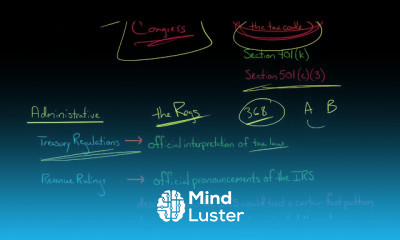 Congress
the tax code
Section 401(k)
Section 501(c)(3)
Administrative
the Regs
368
A B
Treasury Regulations → official interpretation of tax law
Revenue Rulings → official pronouncements of the IRS
Mind
Luster